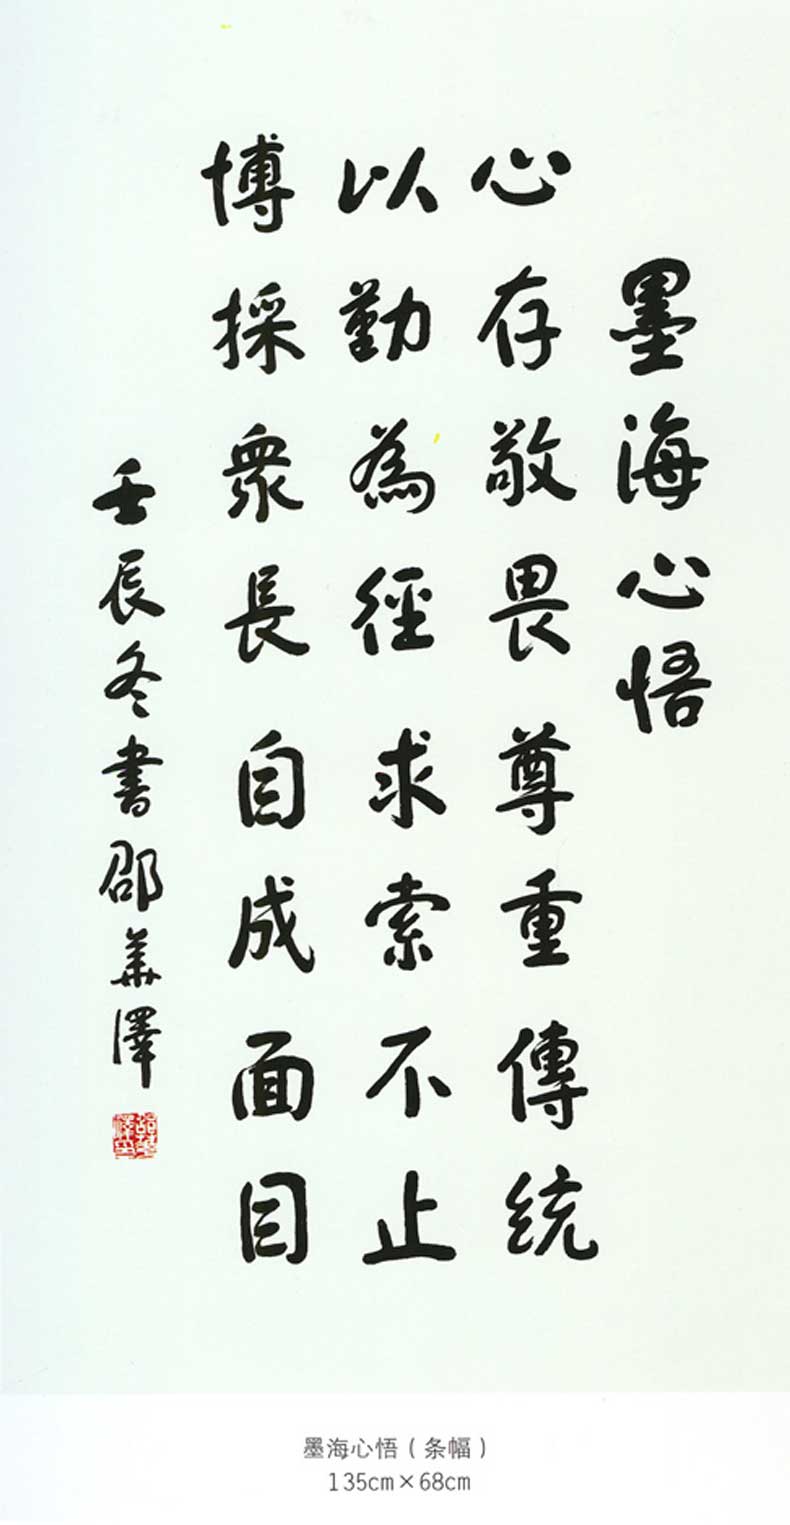 墨海心悟
心存敬畏尊重傳統
以勤為徑求索不止
博採衆長自成面目
壬辰冬書邵華澤
墨海心悟（条幅）
135cm×68cm